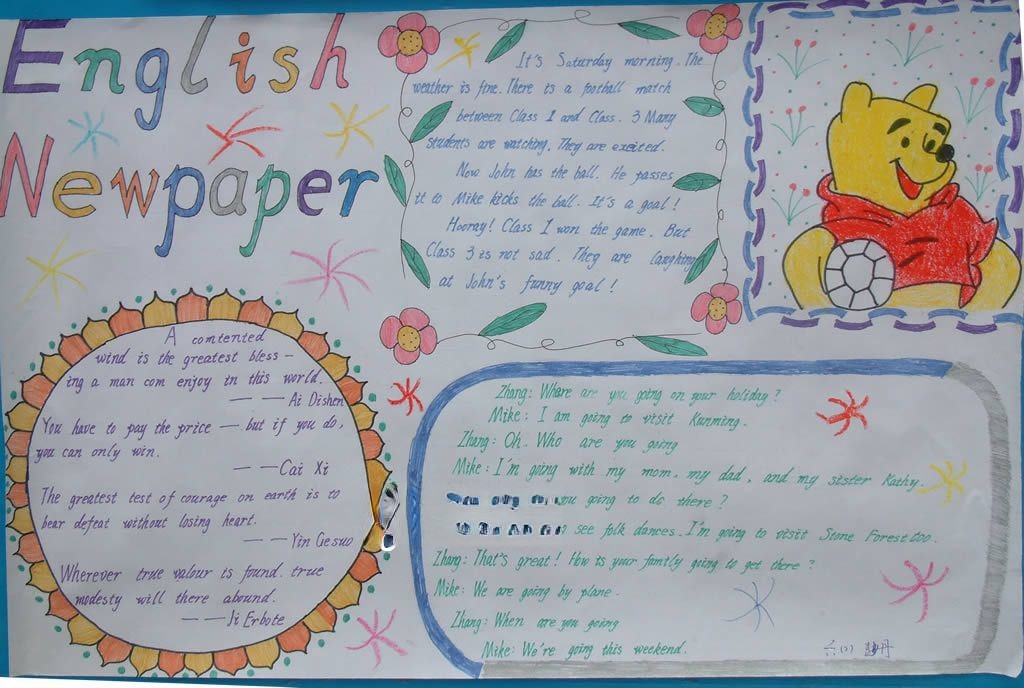 English
Newpaper
It's Saturday morning. The
weather is fine. There is a football match
between Class 1 and Class. 3 Many
students are watching. They are excited.
Now John has the ball. He passes
it to Mike kicks the ball. It's a goal!
Hooray! Class 1 won the game. But
Class 3 is not sad. They are laughing
at John's funny goal!
A comtented
wind is the greatest bless-
ing a man com enjoy in this world.
——Ai Dishen
You have to pay the price — but if you do,
you can only win.
——Cai Xi
The greatest test of courage on earth is to
bear defeat without losing heart.
——Yin Gesuo
Wherever true valour is found. true
modesty will there abound.
——Ji Erbote
Zhang: Whare are you going on your holiday?
Mike: I am going to visit Kunming.
Zhang: Oh. Who are you going
Mike: I'm going with my mom, my dad, and my sister Kathy.
you going to do there?
see folk dances. I'm going to visit Stone Forest too.
Zhang: That's great! How is your family going to get there?
Mike: We are going by plane.
Zhang: When are you going
Mike: We're going this weekend.
六(2)